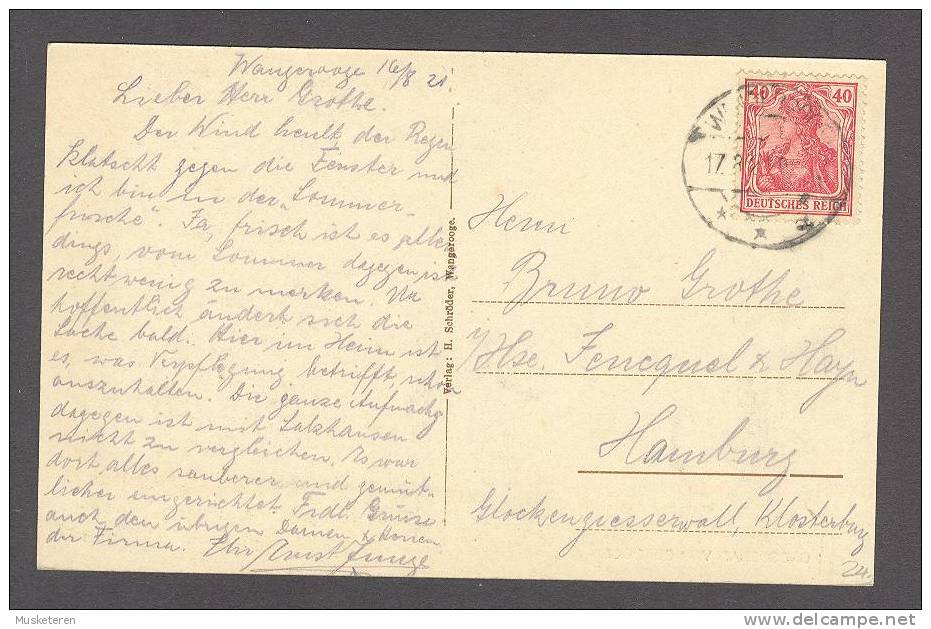 Wangerooge 16/8 21.
Lieber Herr Grothe.
Der Wind heult, der Regen
klatscht gegen die Fenster und
ich bin in der „Sommer-
frische". Ja, frisch ist es aller
dings, vom Sommer dagegen ist
recht wenig zu merken. Na
hoffentlich ändert sich die
Sache bald. Hier im Heim ist
es, was Verpflegung betrifft, schon
auszuhalten. Die ganze Aufmachg
dagegen ist mit Salzhausen
nicht zu vergleichen. Es war
dort alles sauberer und gemüt-
licher eingerichtet. Frdl. Grüsse
auch den übrigen Damen & Herren
der Firma. Ihr Ernst Junge
Verlag: H. Schröder, Wangerooge.
40 40
DEUTSCHES REICH
17.8.
Herrn
Bruno Grothe
Hse. Fencquel & Hayn
Hamburg
Glockengiesserwall, Klosterburg
24.
Musketeren
delcampe.net